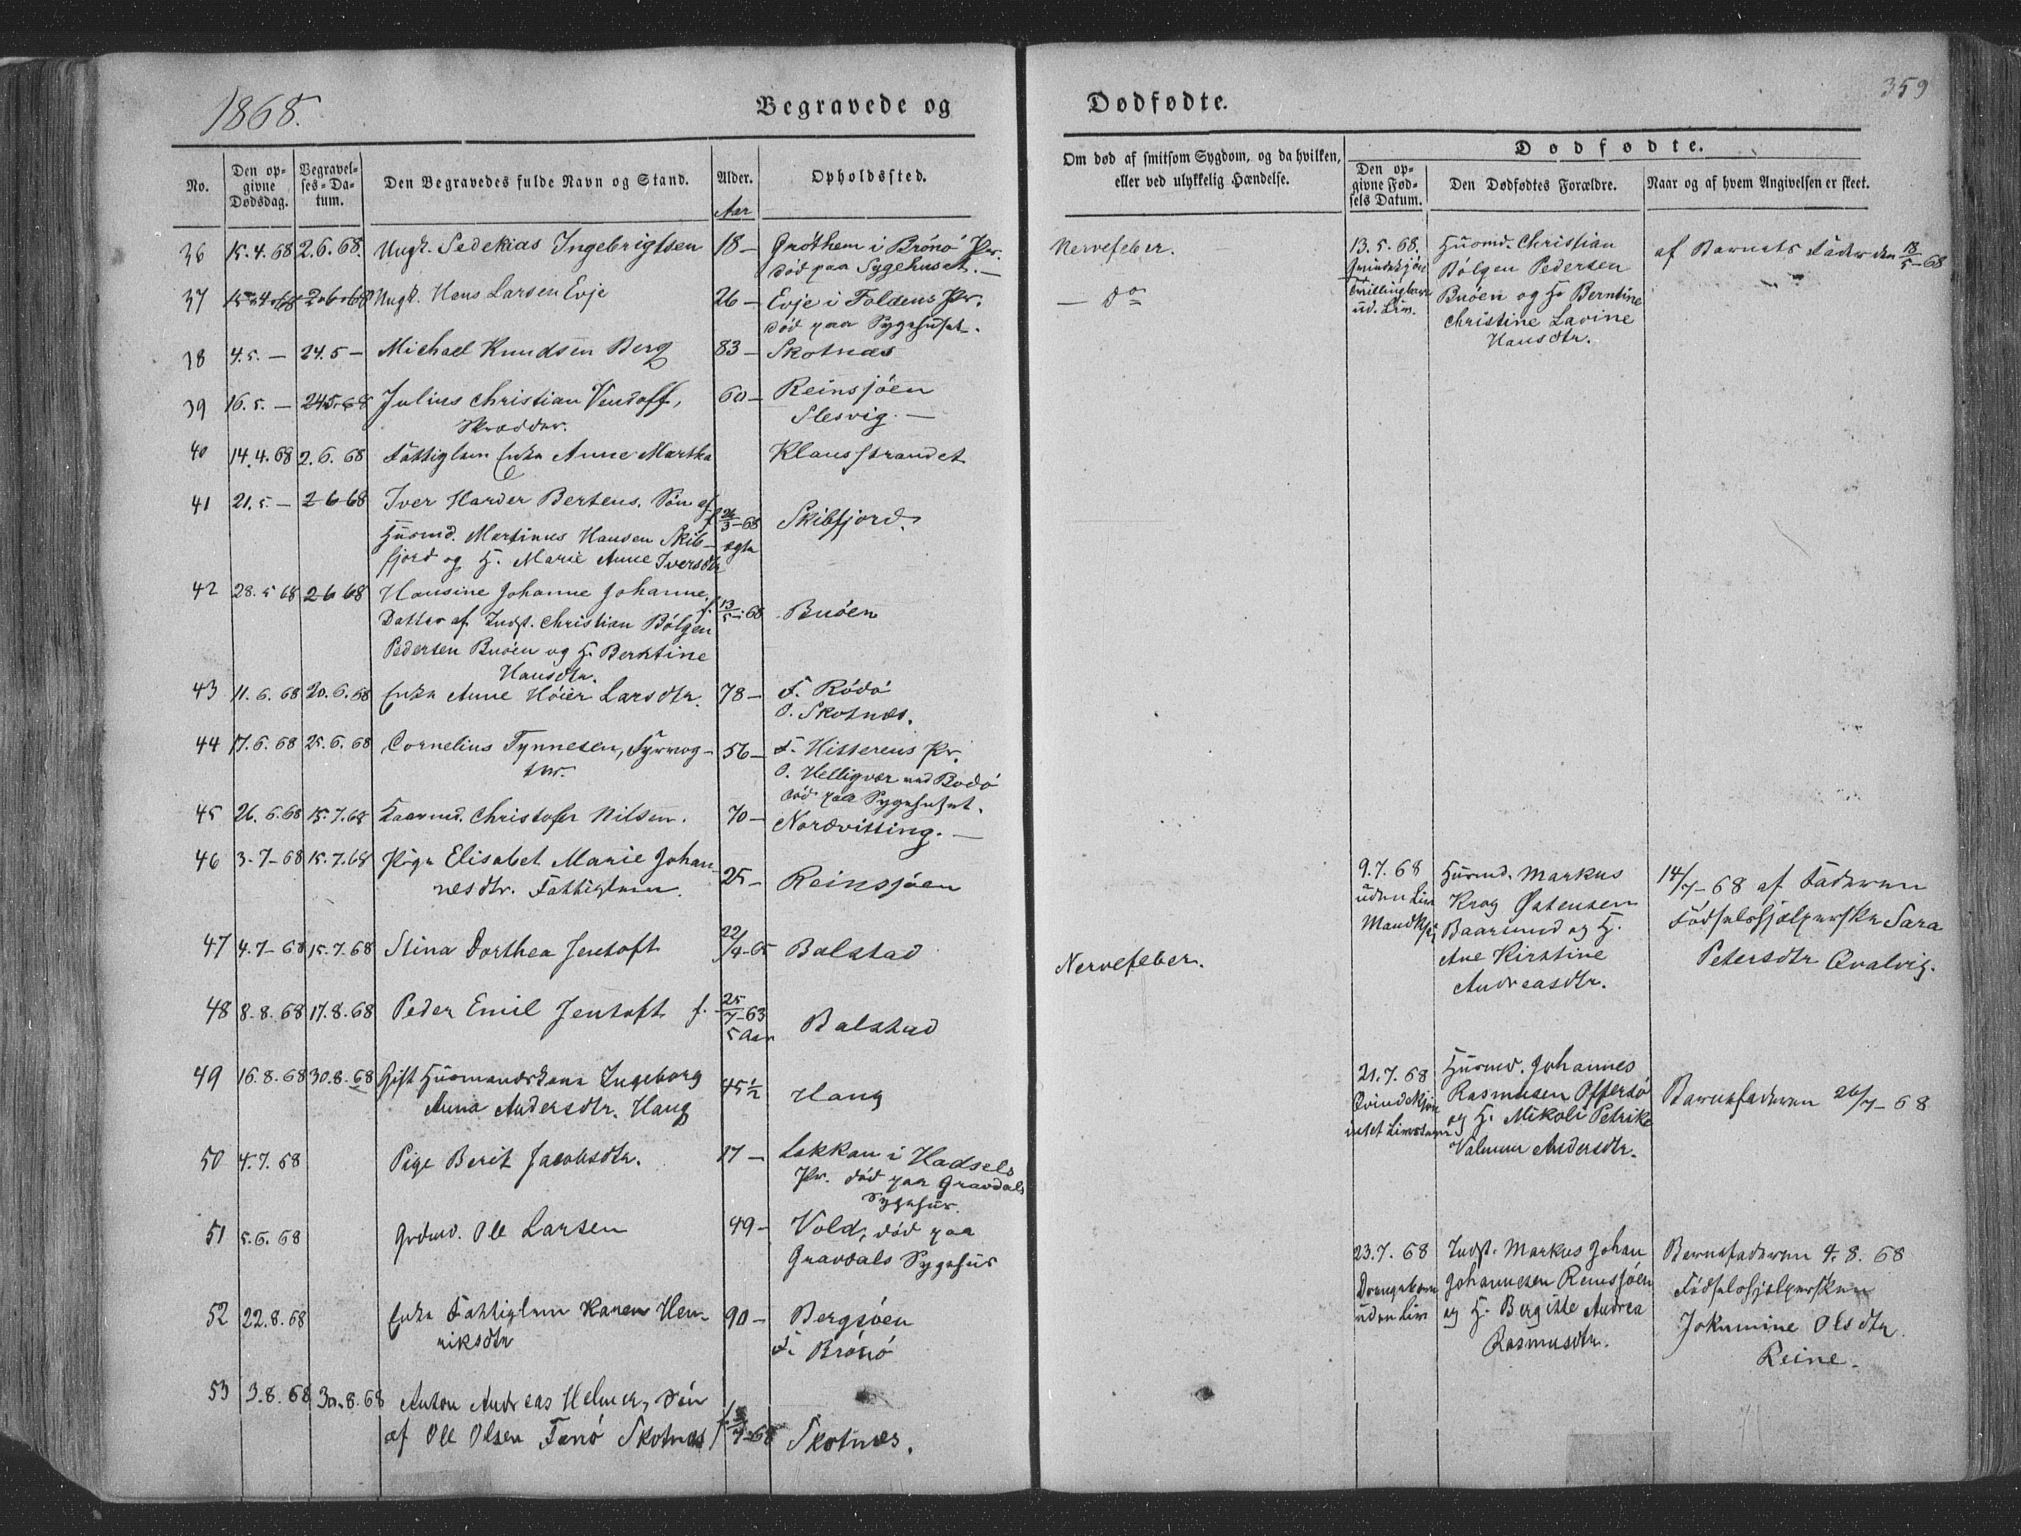 359
1868.
Begravede og Dødfødte.
No.
Den opgivne Dødsdag.
Begravelses-Datum.
Den Begravedes fulde Navn og Stand.
Alder.
Aar
Opholdssted.
Om død af smitsom Sygdom, og da hvilken,
eller ved ulykkelig Hændelse.
Dødfødte.
Den opgivne Fødsels Datum.
Den Dødfødtes Forældre.
Naar og af hvem Angivelsen er skeet.
36 15.4.68 2.6.68. Ungk. Sedekias Ingebrigtsen 18 — Grøthem i Brønø Pr.
død paa Sygehuset. —
Nervefeber.
37 15.4.68 2.6.68 Ungk. Hans Larsen Evje 26 — Evje i Foldens Pr.
død paa Sygehuset.
— do
38 4.5. — 24.5 — Michael Knudsen Berg 83 — Skotnæs
39 16.5. — 24.5.68 Julius Christian Vindoff, 60 — Reinsjøen
Skrædder. Slesvig. —
40 14.4.68 2.6.68 Fattiglem Enke Anne Martha Klausstrandet
41 21.5. — 2 6 68 Iver Harder Bertens. Søn af f. 21/3-68 Skibfjord.
Huusmd. Martinus Hansen Skib- ægte
fjord og H. Marie Anne Iversdtr
42 28.5 68 2 6 68 Hansine Johanne Johanne, f. 13/5-68 Buøen
Datter af Indst. Christian Bølgen
Pedersen Buøen og H. Berntine
Hansdtr.
43 11.6.68 20.6.68 Enke Anne Høier Larsdtr. 78 — F. Rødø
O. Skotnæs.
44 17.6.68 25.6.68 Cornelius Tynnesen, Fyrvog- 56 — F. Hitterens Pr.
ter. O. Helligvær ved Bodø
død paa Sygehuset.
45 26.6.68 15.7.68 Kaarmd. Christofer Nilsen. 70 — Nordvitting. —
46 3-7-68 15.7.68 Pige Elisabet Marie Johan-
nesdtr. Fattiglem. 25 — Reinsjøen
47 4.7-68 15.7.68 Stina Dorthea Jentoft 22/4-65 Balstad
Nervefeber.
48 8.8.68 17.8.68 Peder Emil Jentoft f. 25/7-63 Balstad
5 Aar
49 16.8.68 30.8.68 Gift Huusmandskone Ingeborg 45 1/2 Haug
Anna Andersdtr. Haug
50 4.7.68 Pige Berit Jacobsdtr. 17 — Lekkan i Hadsels
Pr. død paa Gravdals
Sygehus.
51 5.6.68 Grdmd. Ole Larsen 49 - Vold, død paa
Gravdals Sygehus
52 22.8.68 Enke Fattiglem Karen Hen- 90 — Bergsøen
riksdtr F. Brønø
53 3.8.68 30.8.68 Anton Andreas Helmer, Søn
af Ole Olsen Fanø Skotnæs f. 5/7-68 Skotnæs.
13.5.68.
Qvindekjøn
Tvillingbarn
ud. Liv.
Huusmd. Christian
Bølgen Pedersen
Buøen og H. Berntine
Christine Lavine
Hansdtr.
af Barnets Fader den 18/5-68
9.7.68
uden Liv
Mandkjøn
Huusmd. Markus
Krog Østensen
Baarsund og H.
Ane Kirstine
Andreasdtr.
14/7-68 af Faderen
Fødselshjælperske Sara
Petersdtr Qvalvig.
21.7.68
Qvindekjøn
intet Livstegn
Huusmd. Johannes
Rasmusen Offersø
og H. Nikoli Petrike
Valmun Andersdtr.
Barnefaderen 26/7-68
23.7.68
Drengebarn
uden Liv
Indst. Markus Johan
Johannesen Reinsjøen
og H. Bergitte Andrea
Rasmusdtr.
Barnefaderen 4.8.68
Fødselshjælpersken
Jokumine Olsdtr
Reine.